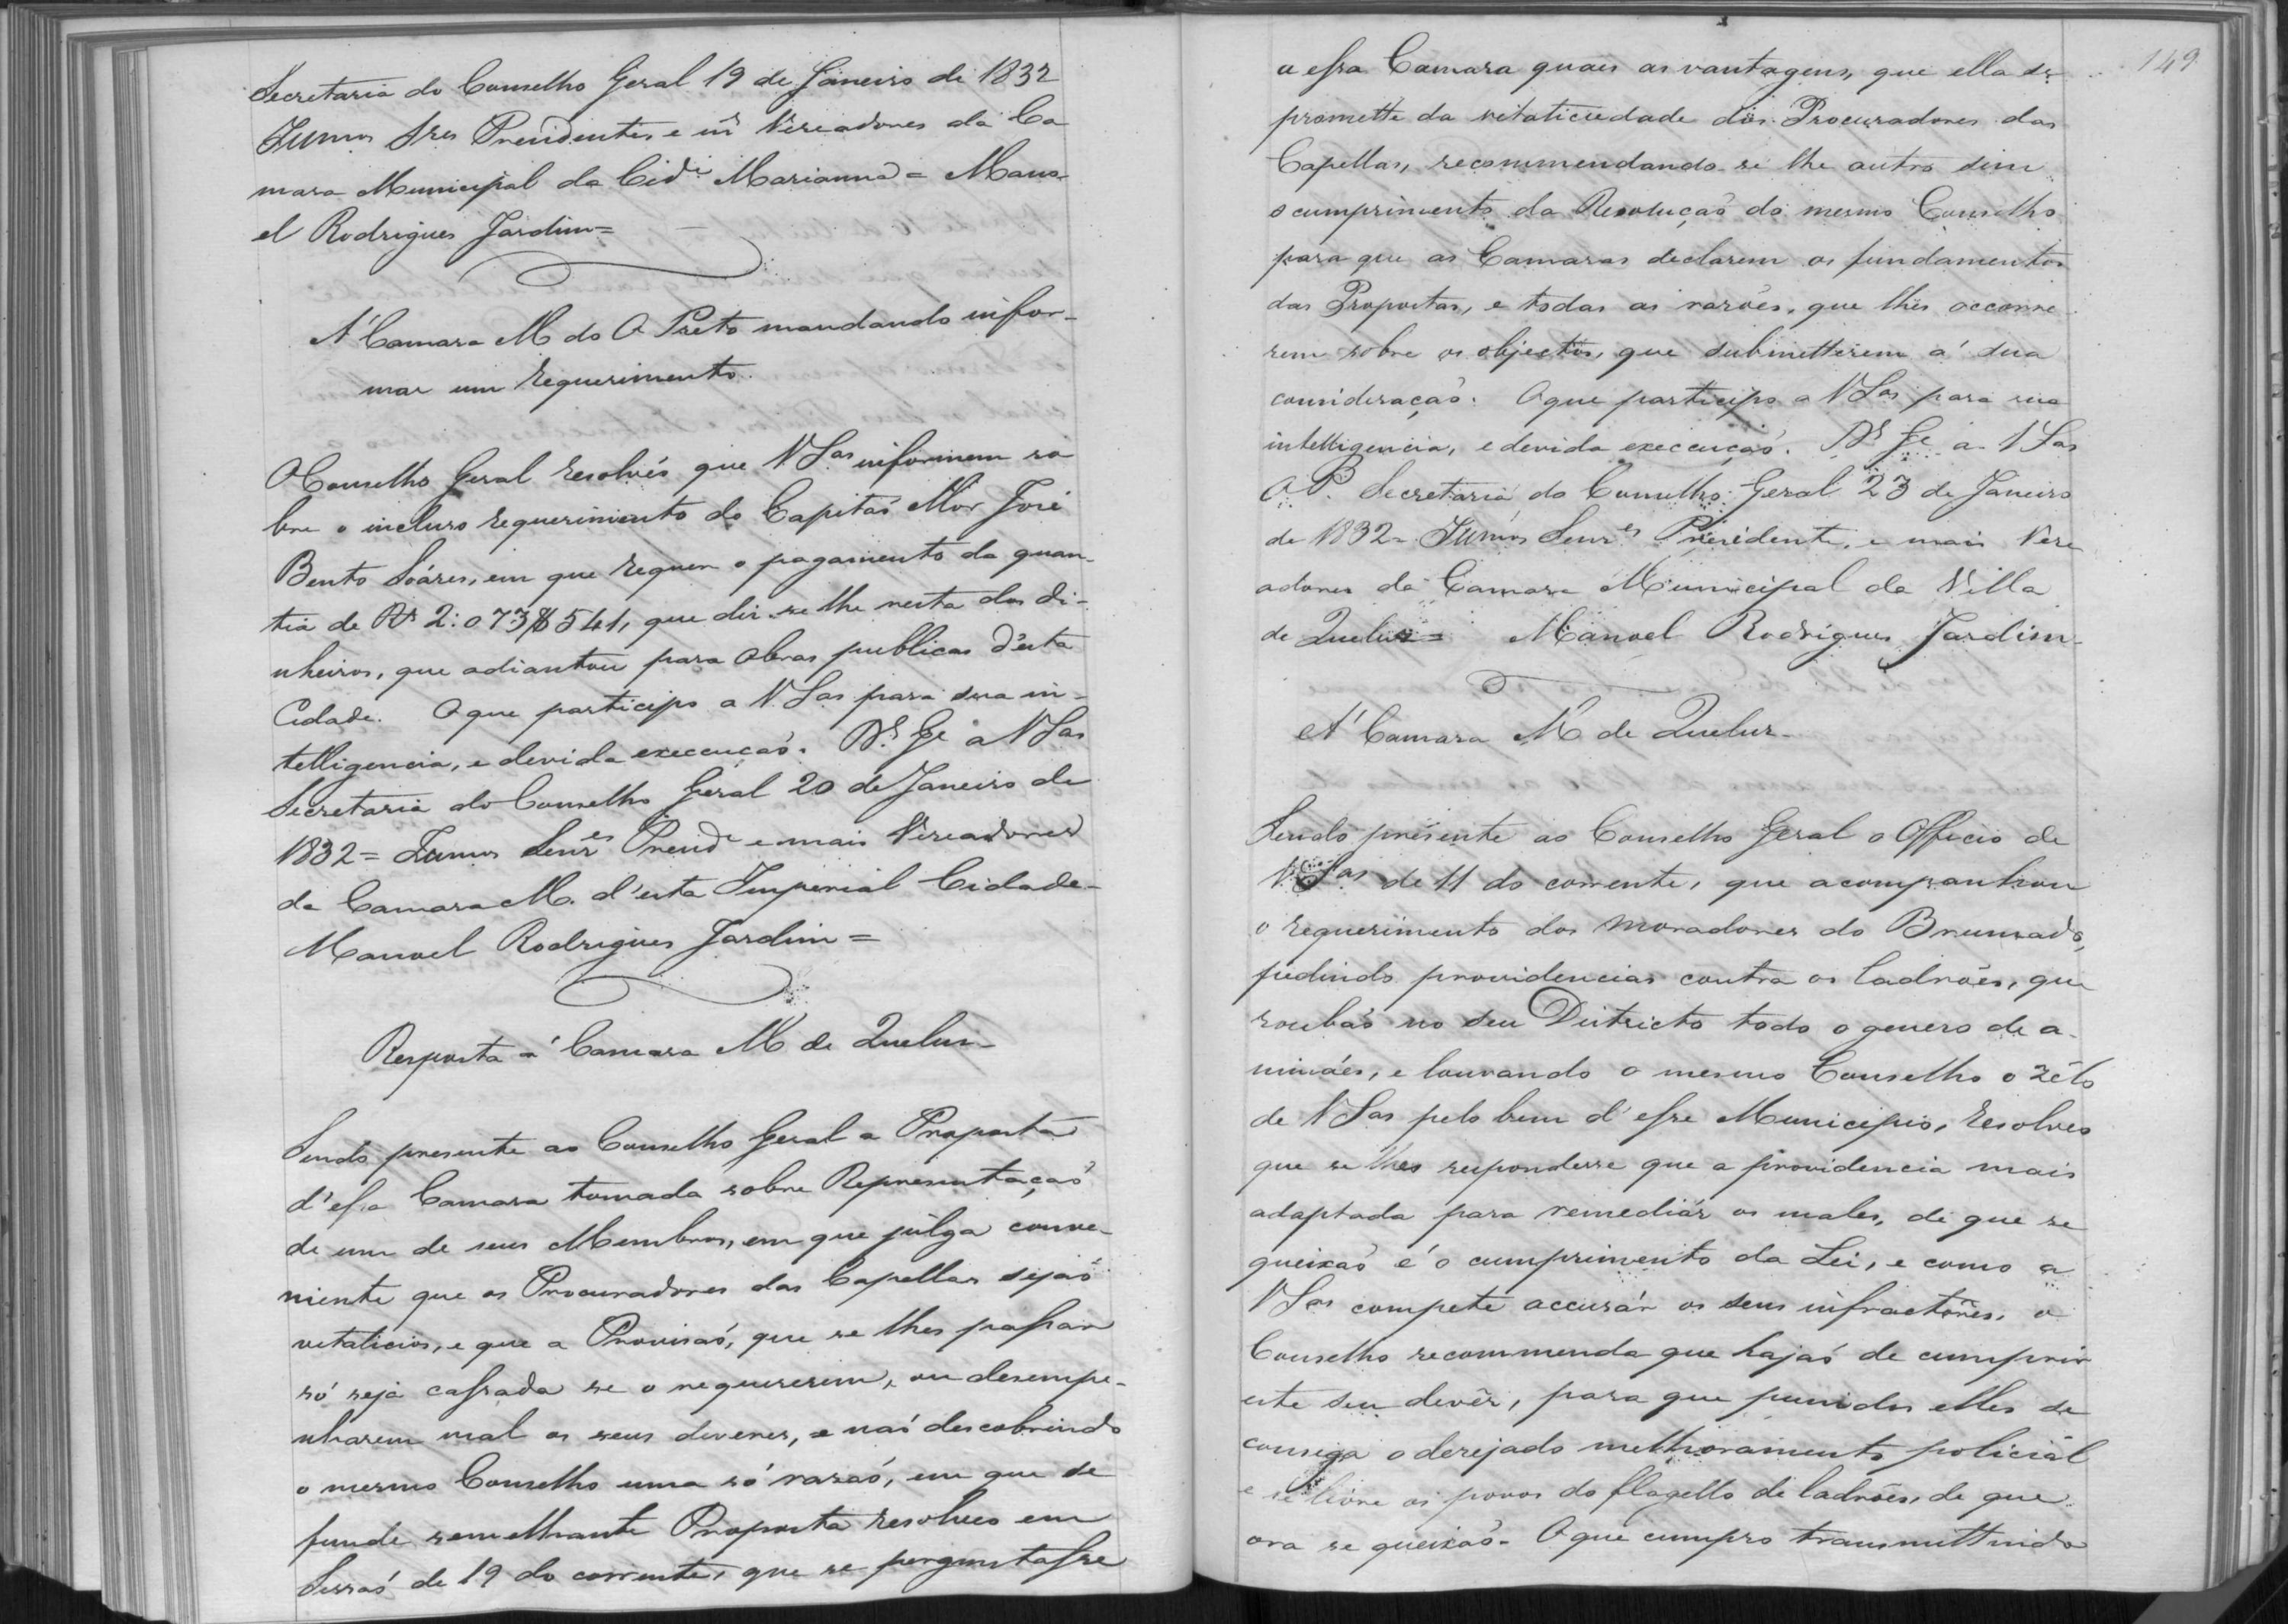 Secretaria do Conselho Geral 19 de Janeiro de 1832
Illmos Sres Presidente e ms Vereadores da Ca
mara Municipal da Cide Marianna = Mano-
el Rodrigues Jardim =
A' Camara M do O Preto mandando infor-
mar um requerimento.
O Conselho Geral resolvêo que V Sas informem so
bre o incluso requerimento do Capitaõ Mor José
Bento Soáres, em que requer o pagamento da quan-
tia de Rs 2:073$541, que diz se lhe resta dos di-
nheiros, que adiantou para obras publicas d'esta
Cidade. O que participo a V. Sas para sua in-
telligencia, e devida execcuçaõ. Ds Ge a V Sas
Secretaria do Conselho Geral 20 de Janeiro de
1832 = Illmos Senres Preside e mais Vereadores
da Camara M. d'esta Imperial Cidade-
Manoel Rodrigues Jardim =
Resposta á Camara M de Queluz-
Sendo presente ao Conselho Geral a Proposta
d'essa Camara tomada sobre Representaçaõ
de um de seus Membros, em que julga conve-
niente que os Procuradores das Capellas sejaõ
vetalicios, e que a Provisaõ, que se lhes passar
só seja cassada se o requererem, ou desempe-
nharem mal os seus deveres, e naõ descobrindo
o mesmo Conselho uma só razaõ, em que se
funde semelhante Proposta resolveo em
Sessaõ de 19 do corrente, que se perguntasse
149
a essa Camara quaes as vantagens, que ella se
promette da vitaliciedade dos Procuradores das
Capellas, recommendando-se lhe outro sim
o cumprimento da Resoluçaõ do mesmo Conselho
para que as Camaras declarem os fundamentos
das Propostas, e todas as razões, que lhes occorre-
rem sobre os objectos, que submetterem á sua
consideraçaõ. O que participo a V Sas para sua
intelligencia, e devida execcuçaõ. Ds Ge a V Sas
O. P. Secretaria do Conselho Geral 23 de Janeiro
de 1832 = Illmos Senres Presidente, e mais Vere
adores da Camara Municipal da Villa
de Queluz = Manoel Rodrigues Jardim-
A' Camara M de Queluz-
Sendo presente ao Conselho Geral o Officio de
V Sas de 11 do corrente, que acompanhou
o requerimento dos moradores do Brumado,
pedindo providencias contra os ladrões, que
roubaõ no seu Districto todo o genero de a-
nimáes, e louvando o mesmo Conselho o zêlo
de V Sas pelo bem d'esse Municipio, resolveo
que se lhes respondesse que a providencia mais
adaptada para remediár os males, de que se
queixaõ é o cumprimento da Lei, e como a
V Sas compete accusár os seus infractores, o
Conselho recommenda que hajaõ de cumprir
este seu devêr, para que punidos elles se
consega o desejado melhoramento policiál
e se livre os povos do flagello de ladrões, de que
ora se queixaõ. O que cumpro transmittindo